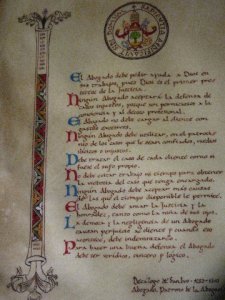 El Abogado debe pedir ayuda a Dios en
sus trabajos, pues Dios es el primer pro-
tector de la Justicia.
Ningún Abogado aceptará la defensa de
casos injustos, porque son perniciosos a la
conciencia y al decoro profesional.
El Abogado no debe cargar al cliente con
gastos excesivos.
Ningún Abogado debe utilizar, en el patroci-
nio de los casos que le sean confiados, medios
ilícitos o injustos.
Debe tratar el caso de cada cliente como si
fuese el suyo propio.
No debe evitar trabajo ni tiempo para obtener
la victoria del caso que tenga encargado.
Ningún Abogado debe aceptar más causas
de las que el tiempo disponible le permite.
El Abogado debe amar la Justicia y la
honradez, tanto como la niña de sus ojos.
La demora y la negligencia de un Abogado
causan perjuicio al cliente y cuando eso
acontece, debe indemnizarlo.
Para hacer una buena defensa el Abogado
debe ser verídico, sincero y lógico.
Decálogo de San Ivo
Abogado, Patrono de los Abogados